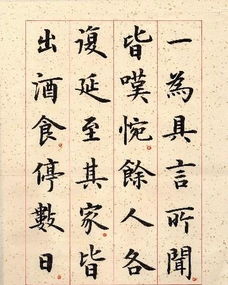 一為具言所聞
皆嘆惋餘人各
復延至其家皆
出酒食停數日